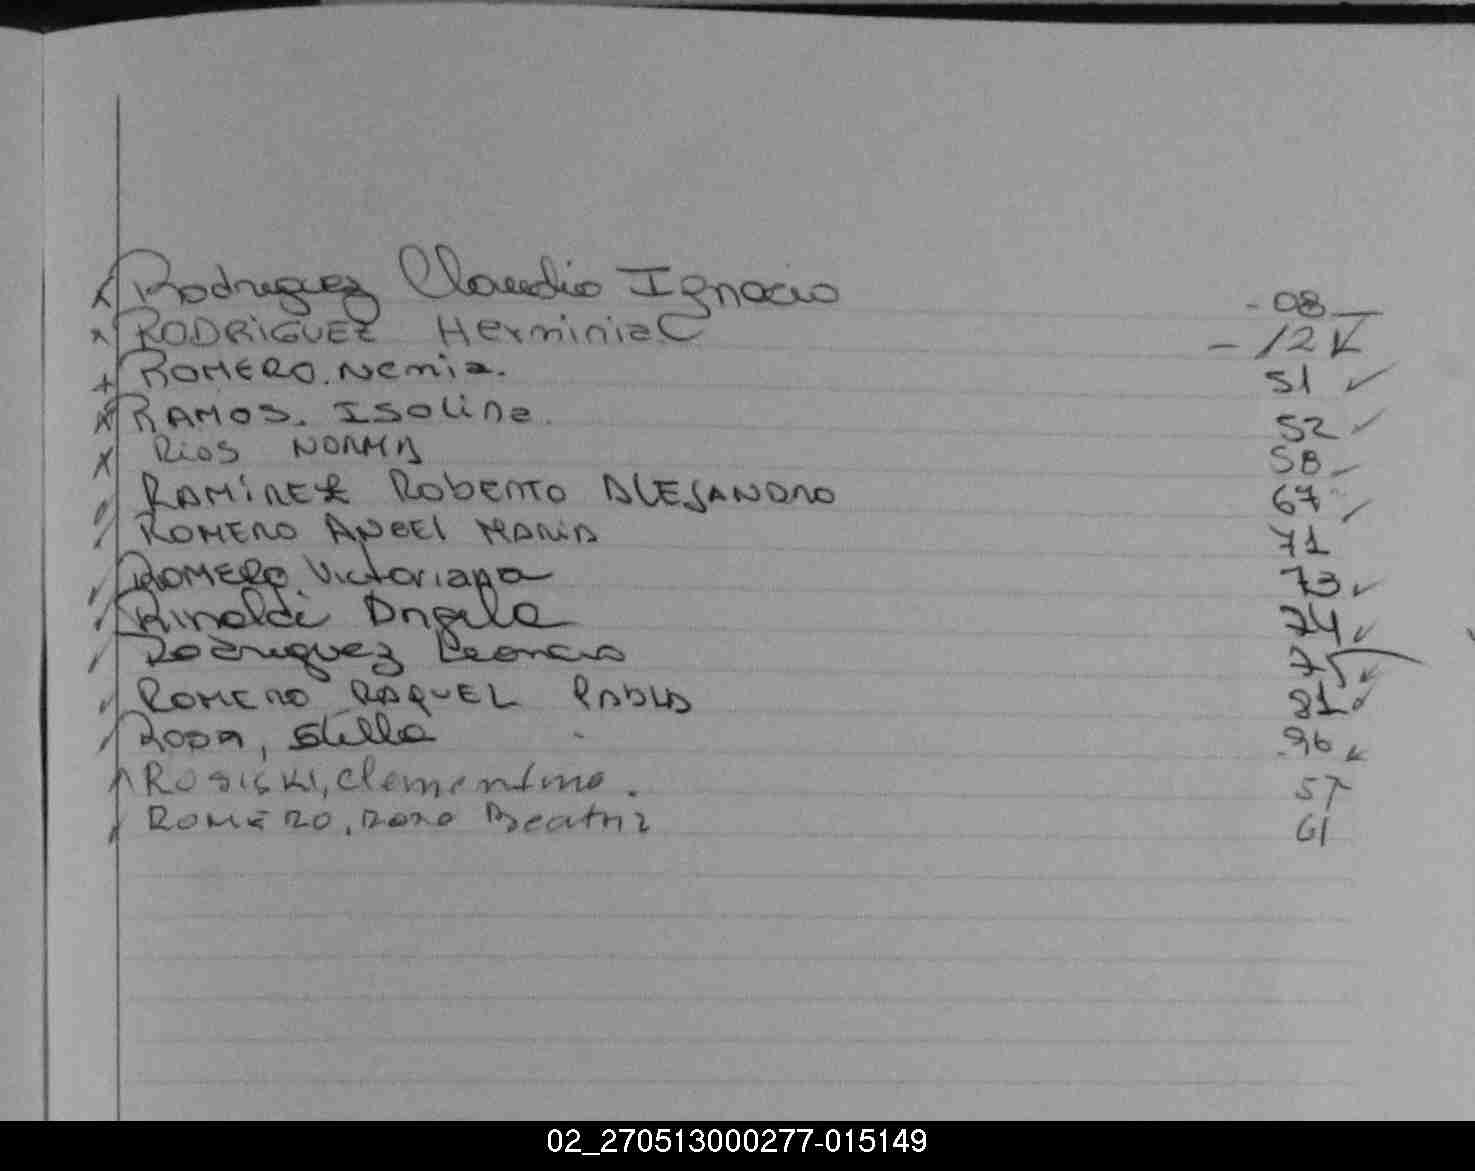 Rodriguez Claudio Ignacio - 08
RODRIGUEZ Herminia C - 12
ROMERO. Nemia. 51
RAMOS. ISOLINA. 52
Rios NORMA 58
RAMIREZ ROBERTO ALEJANDRO 67
ROMERO ANGEL MARIA 71
ROMERO Victoriana 73
Rinaldi Angela 74
Rodriguez Leoncio 75
ROMERO RAQUEL PABLA 81
Stella 96
Clementina. 57
ROMERO, ROSA Beatriz 61
02_270513000277-015149